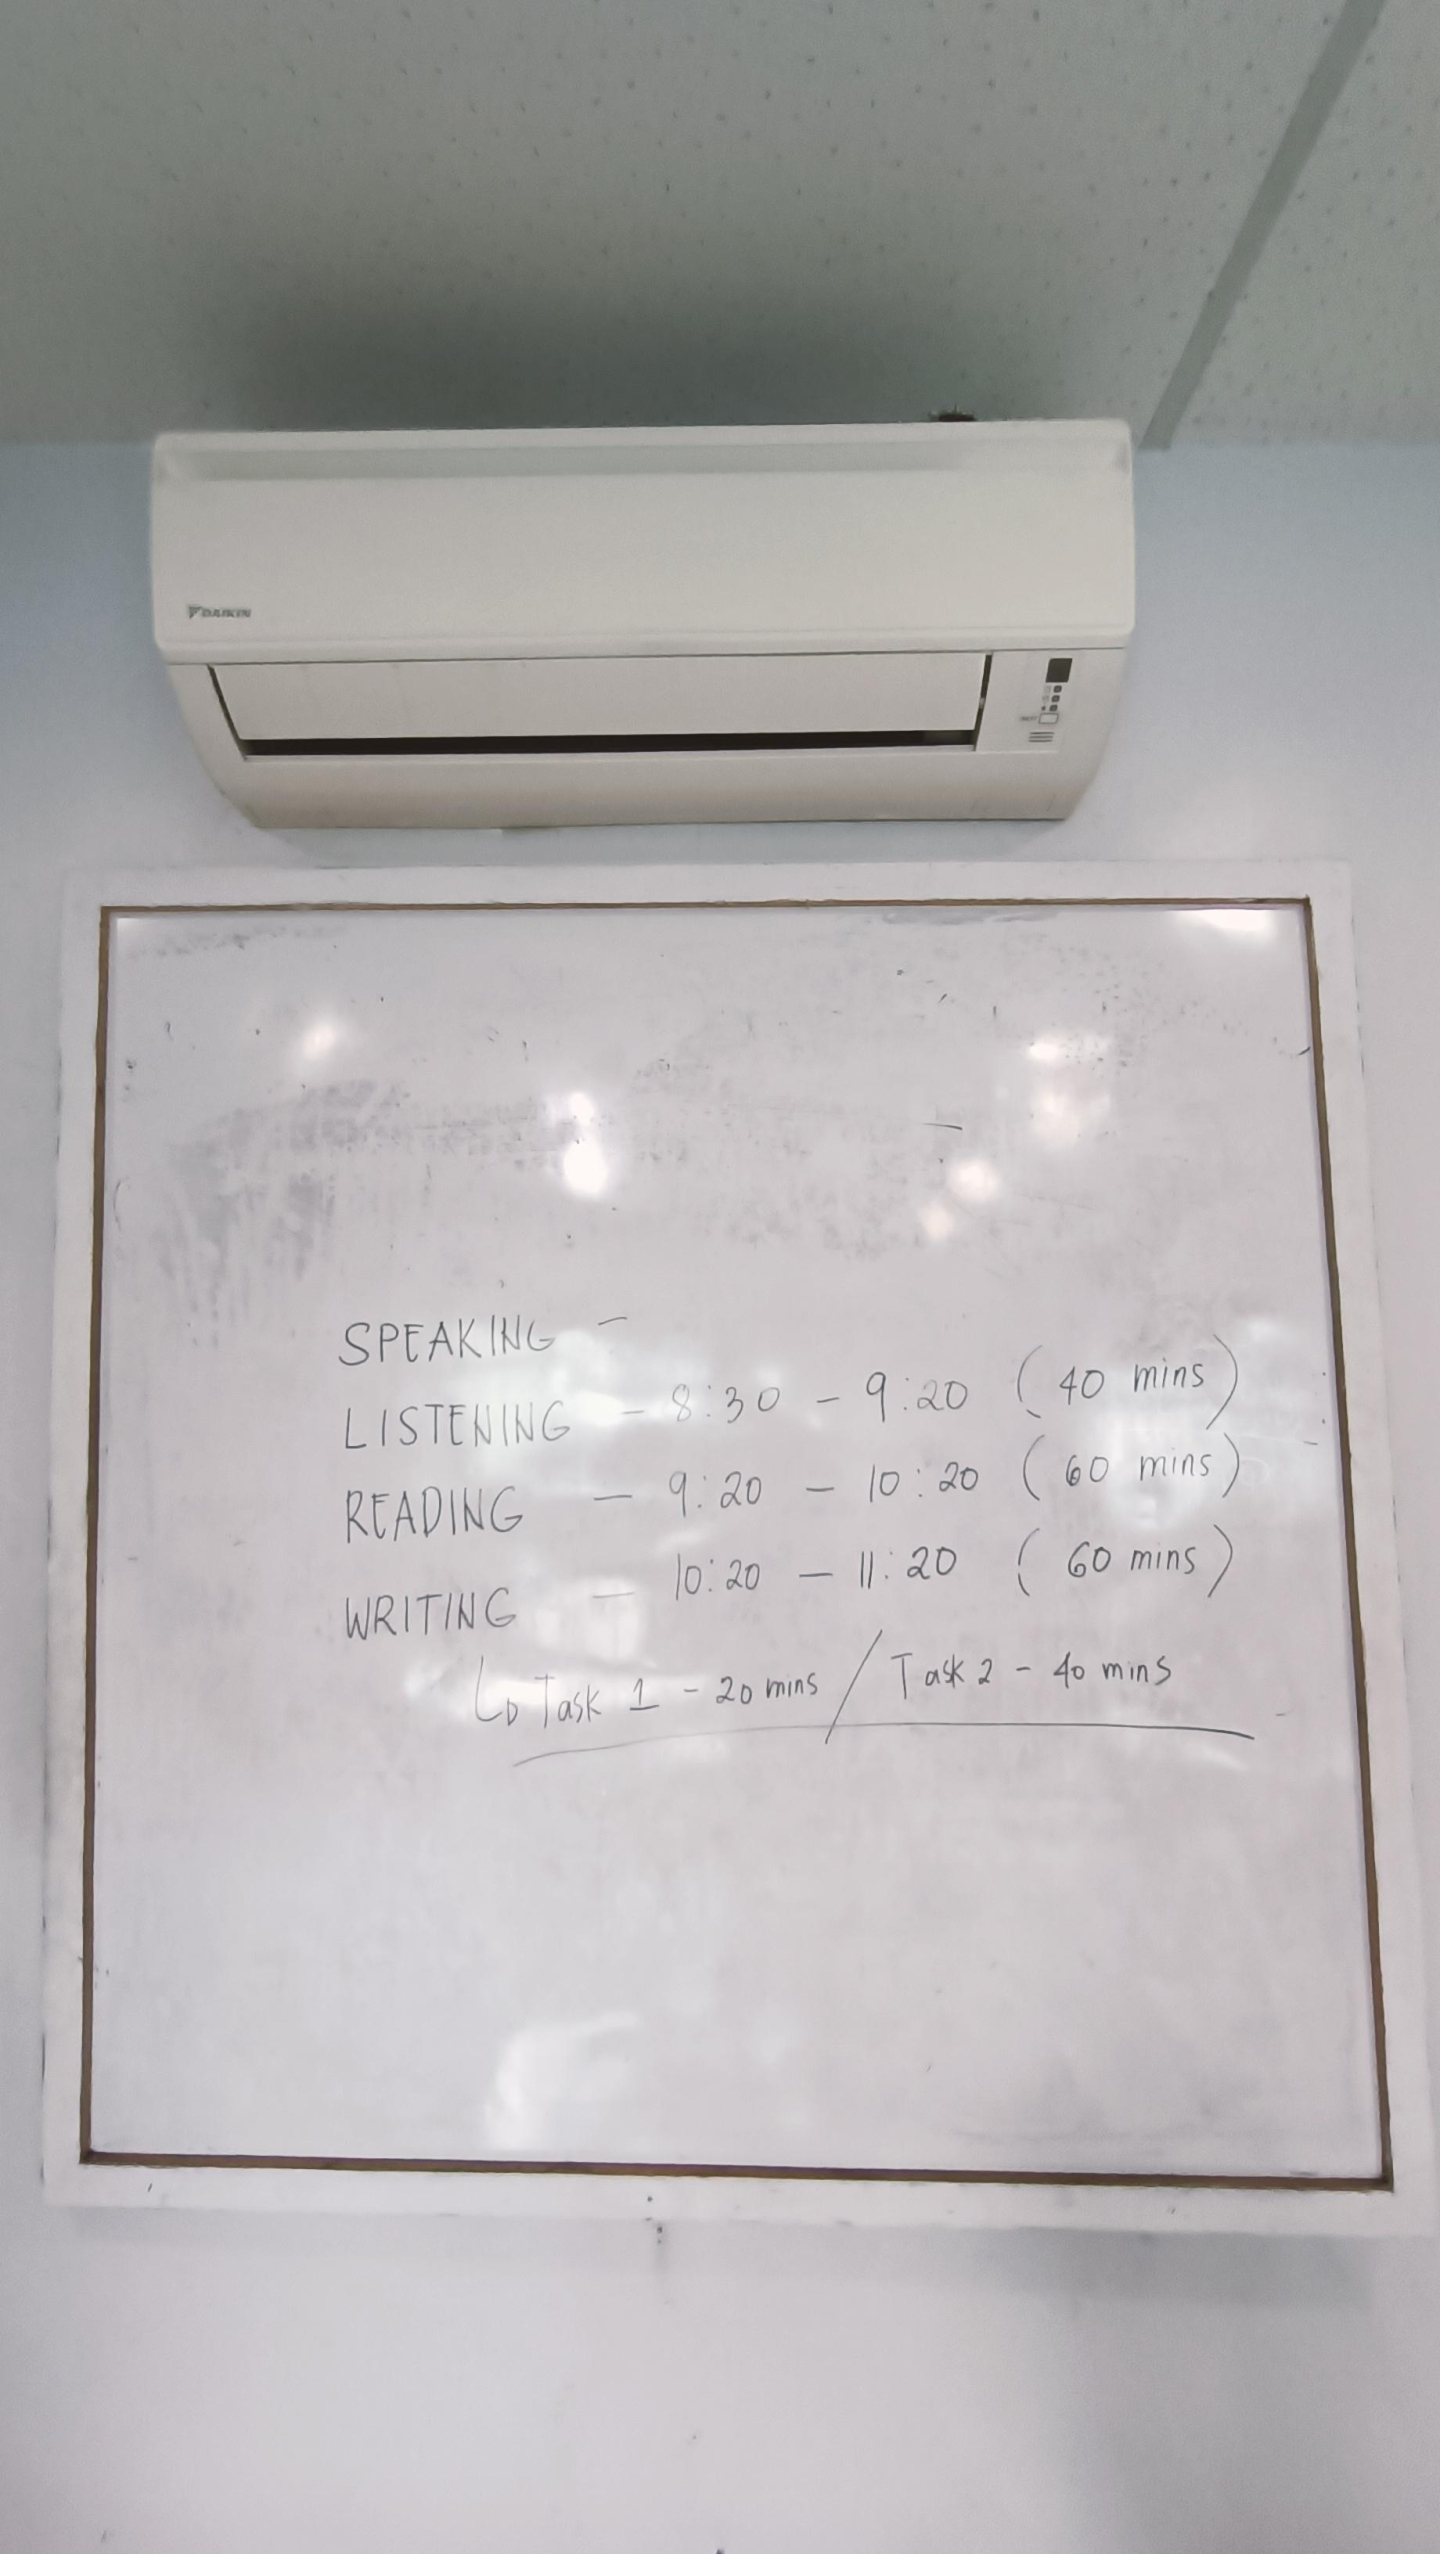 DAIKIN
SPEAKING -
LISTENING - 8:30 - 9:20 (40 mins)
READING - 9:20 - 10:20 (60 mins)
WRITING - 10:20 - 11:20 (60 mins)
↳ Task 1 - 20 mins / Task 2 - 40 mins